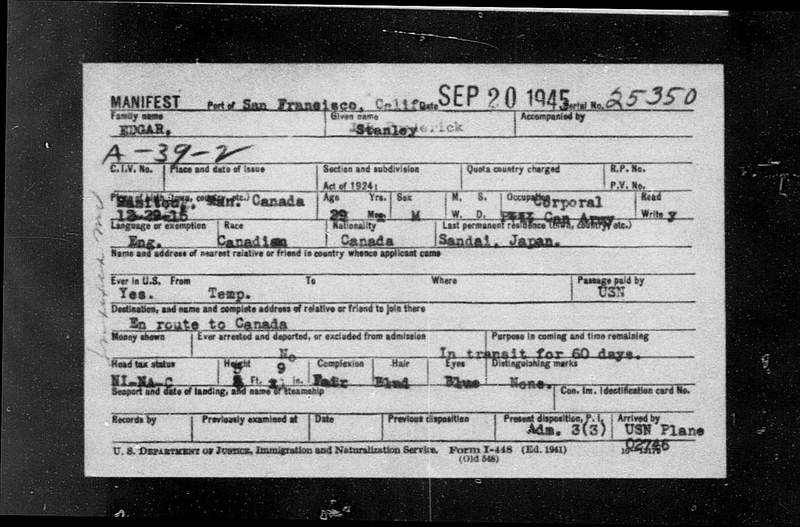 MANIFEST Port of San Francisco, Calif. Date SEP 20 1945 Serial No. 25350
Family name Given name Accompanied by
EDGAR, Stanley
A-39-2
C.I.V. No. Place and date of issue Section and subdivision Quota country charged R.P. No.
Act of 1924: P.V. No.
Age Yrs. Sex M. S. Occupation Read
Manitou, Man. Canada Corporal
12-29-15 29 Mos. M W. D. Can Army Write y
Language or exemption Race Nationality Last permanent residence (town, country, etc.)
Eng. Canadian Canada Sandai, Japan.
Name and address of nearest relative or friend in country whence applicant came
Ever in U.S. From To Where Passage paid by
Yes. Temp. USN
Destination, and name and complete address of relative or friend to join there
En route to Canada
Money shown Ever arrested and deported, or excluded from admission Purpose in coming and time remaining
No In transit for 60 days.
Head tax status Height Complexion Hair Eyes Distinguishing marks
5 9
NI-NA-C Ft. in. Fair Blnd Blue None.
Seaport and date of landing, and name of steamship Con. Im. Identification card No.
Records by Previously examined at Date Previous disposition Present disposition, P. I. Arrived by
Adm. 3(3) USN Plane
02746
U. S. DEPARTMENT OF JUSTICE, Immigration and Naturalization Service. Form I-448 (Ed. 1941)
(Old 548)